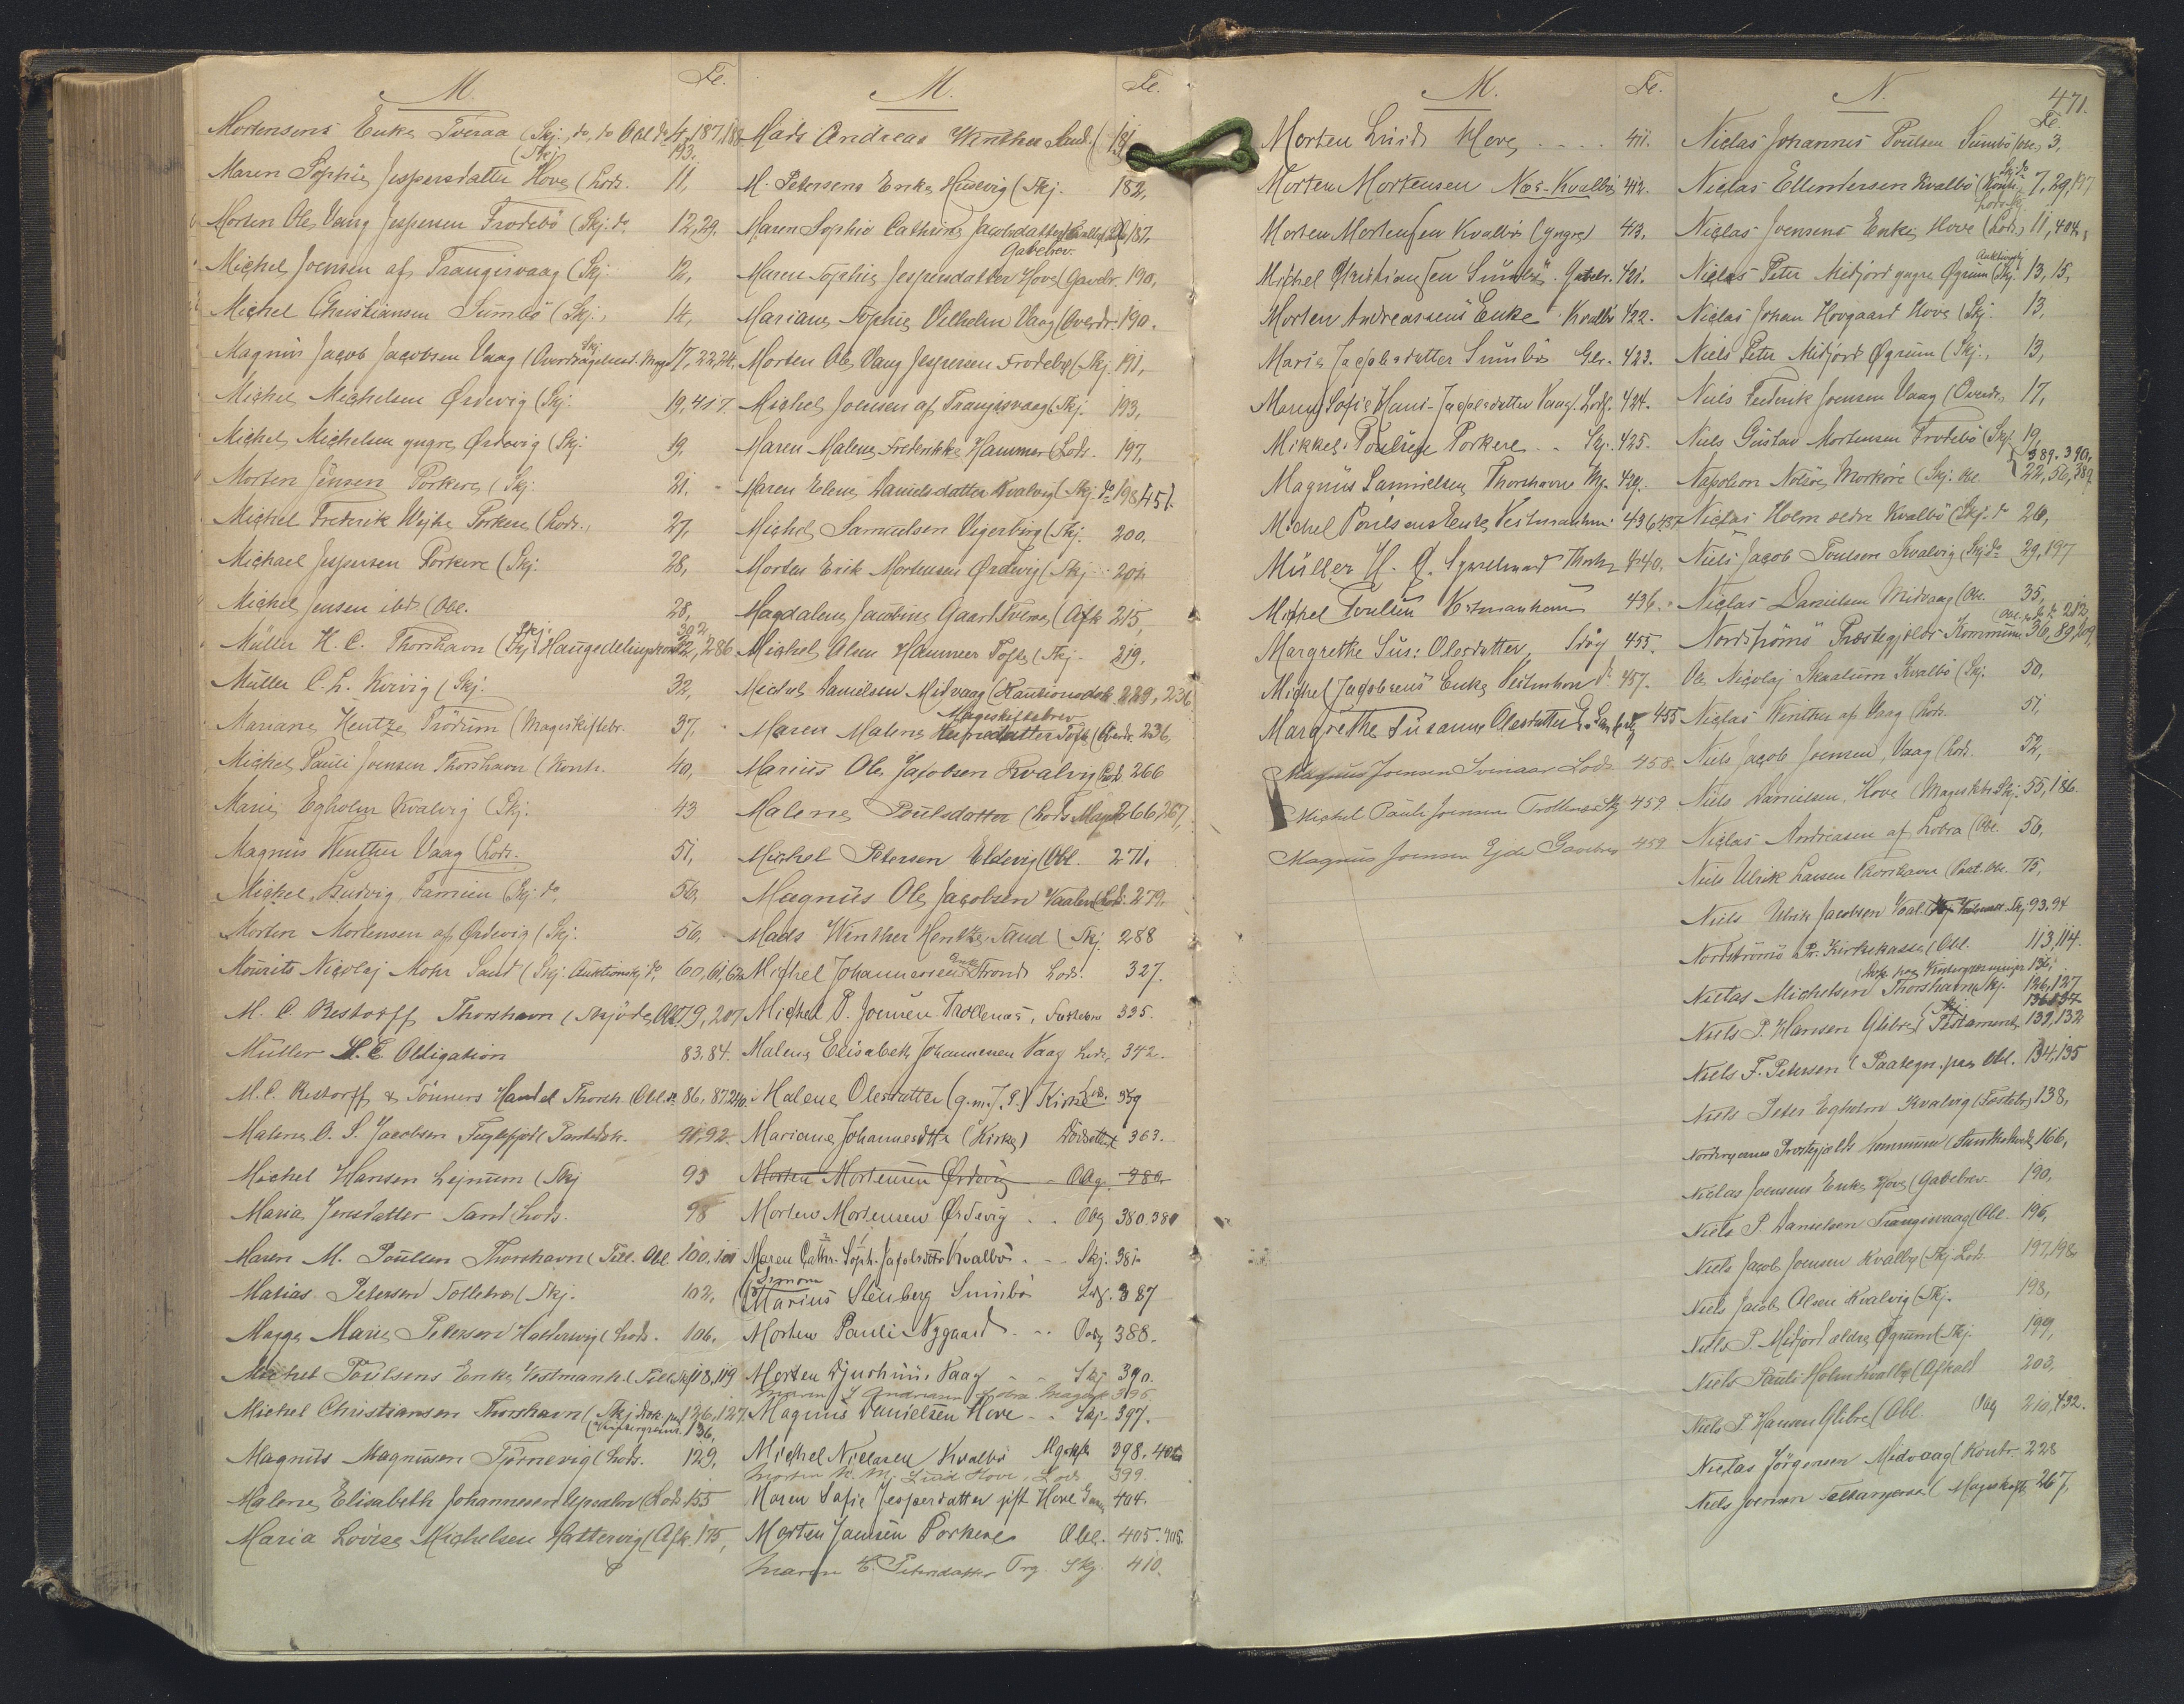 M. Fe.
Mortensens Enke Tveraa (Skj. do, do Obl do 4, 187, 188
(Skj. 193.
Maren Sophie Jespersdatter Hove (Lods. 11,
Morten Ole Vang Jespersen Frodebö (Skj. do 12, 29.
Michel Joensen af Trangisvaag (Skj. 12,
Michel Christiansen Sumbö (Skj. 14,
Magnus Jacob Jacobsen Vaag (Skj. 17, 22, 24,
Michel Michelsen Ördevig (Skj. 19, 417.
Michel Michelsen yngre Ördevig (Skj. 19,
Morten Jensen Porkere (Skj. 21.
Michel Frederik Wejhe Porkere (Lods. 27,
Michael Jespersen Porkere (Skj. 28,
Michel Jensen ibd. (Obl. 28,
Müller H. C. Thorshavn (Skj. 286
Müller C. L. Kvivig (Skj. 32,
Mariane Hentze Trödum (Mageskiftebr. 37,
Michel Pauli Joensen Thorshavn (Kontr. 40,
Marie Egholm Kvalvig (Skj. 43
Magnus Winther Vaag (Lods. 51,
Michel Ludvig Famien (Skj. do, 56,
Morten Mortensen af Ördevig (Skj. 56,
Mourits Nicolaj Mohr Sand (Skj. Auktionskj. do, 60, 61, 62
M. C. Restorff Thorshavn (Skjöde, Obl. 79, 207
Müller H. C. Obligation 83, 84.
M. C. Restorff & Sönners Handel Thorsh. (Obl. do 86, 87, 240.
Malene O. S. Jacobsen Fuglefjord 91, 92
Michel Hansen Lejnum (Skj 93
Maria Jensdatter Sand (Lods. 98
Maren M. Poulsen Thorshavn (Till. Obl. 100, 101
Matias Petersen Tolletro (Skj. 102,
Magge Marie Petersen Haldervig (Lods. 106,
Michel Poulsens Enke Vestmanh. 118, 119
Michel Christiansen Thorshavn (Skj. 126, 127.
136,
Magnus Magnussen Tjörnevig (Lods. 129,
Malene Elisabeth Johannesen (Lods 155
Maria Lovise Michelsen Hattervig (Afk. 175,
M. Fe.
Mads Andreas Winther Sand. ( 181
M. Petersens Enke Husevig (Skj. 182,
Maren Sophie Cathrine Jacobsdatter 187,
Gabebrev.
Maren Sophie Jespersdatter Hove (Gavebr. 190,
Mariane Sophie Vilhelm Vaag (Overdr. 190.
Morten Ole Vang Jespersen Frodebö (Skj. 191,
Michel Joensen af Trangisvaag (Skj. 193,
Maren Malene Frederikke Hammer (Lods. 197,
Maren Elene Danielsdatter Kvalvig (Skj. do 198, 451.
Michel Samuelsen (Skj. 200.
Morten Erik Mortensen Ördevig (Skj. 204
Magdalene Jacobine Gaard (Afk 215,
Michel Olsen Hammer Tofte (Skj. 219.
Michel Danielsen Midvaag (Kautionsdok. 229, 236
Mageskiftebrev
Maren Malene Tofte (Overdr. 236,
Marius Ole Jacobsen Kvalvig (Lod. 266
Malene Poulsdatter (Lods 266, 267,
Michel Petersen Eldevig (Obl. 271,
Magnus Ole Jacobsen (Lods. 279.
Mads Winther Hentze Sand (Skj. 288
Michel Johannesens Enke Strond Lods. 327.
Michel P. Joensen 335.
Malene Elisabeth Johannesen Vaag Lods. 342.
Malene Olesdatter (g. m. J. P.) Kirke Lds. 359
Mariane Johannesdttr (Kirke) Dödsattest 363.
Morten Mortensen Ördevig Oblg. 380.
Morten Mortensen Ördevig .. Oblg 380. 381
Maren Cathr. Soph. Jacobsdttr Kvalbö .. Skj. 381.
Simon
Marius Stenberg Sumbö Lodz. 387
Morten Pauli Nygaard ... 388.
Morten Djurhuus Vaag .. Skj 390.
396
Magnus Danielsen Hove .. Skj. 397.
Michel Niclasen Kvalbö Mgskfte 398, 402
Morten K. M. Lund Hove, Lods 399.
Maren Sofie Jespersdatter gift Hove 404.
Morten Jensen Porkere Obl. 405. 405.
Maren E. Petersdatter Trg. Skj. 410.
M. Fe.
Morten Lüid Hove .... 411.
Morten Mortensen Nes-Kvalbö 412.
Morten Mortensen Kvalbö (yngre) 413.
Michel Christiansen Sumbö Gavebr. 421.
Morten Andreasens Enke Kvalbö 422.
Marie Jacobsdatter Sumbö 423.
Maren Sofie Hans-Jacobsdatter Vaag. Lodz. 424.
Mikkel Poulsen Porkere .. Skj. 425.
Magnus Samuelsen Thorshavn Skj. 429.
Michel Poulsens Enke Vestmanhavn 436
Müller H. C. Sysselmand Thorsh 440.
Michel Poulsen Vestmanhavn 436.
Margrethe Sus: Olesdatter 455.
Michel Jacobsens Enke Vestmhavn do 457.
Margrethe Susanne Olesdatter 455
Magnus Joensen Lods 458.
Michel Pauli Joensen Skj 459.
Magnus Joensen Ejde Gavebrev 459
471.
N. Fe.
Niclas Johannes Poulsen Sumbö 3,
Niclas Ellendersen Kvalbö 7, 29, 197
Niclas Joensens Enke Hove (Lods. 11, 404.
Niclas Peter Midjord yngre Øgrum (Skj. 13, 15,
Niclas Johan Hovgaard Hove (Skj. 13,
Niels Peter Midjord Øgrum (Skj. 13,
Niels Frederik Joensen Vaag (Overdr. 17,
Niels Gustav Mortensen Frodebö (Skj. 19
389. 390,
Napoleon Nolsöe Morköre (Skj. Obl. 22, 56, 389
Niclas Holm ældre Kvalbö (Skj. do 26,
Niels Jacob Poulsen Kvalvig (Skj. do 29, 197
Niclas Danielsen Midvaag (Obl. 35,
Nordströmö Præstegjelds Kommune 36, 89,
Ole Nicolaj Skaalum Kvalbö (Skj. 50,
Niclas Winther af Vaag (Lods. 51,
Niels Jacob Joensen, Vaag (Lods. 52,
Niels Danielsen, Hove (Mageskifte Skj. 55, 186.
Niclas Andreasen af Lobra (Obl. 56,
Niels Ulrik Larsen Thorshavn (Pant. Obl. 75,
Niels Ulrik Jacobsen Vaal. Skj. 93. 94
Nordströmö Pr. Kirkekasse (Obl. 113, 114.
Niclas Michelsen Thorshavn Skj. 126, 127
Niels P. Hansen Glibre (Testament, 132, 132
Niels F. Petersen (Paategn. paa Obl. 134, 135
Niels Peter Egholm Kvalvig (Festebr. 138,
Norderøernes Præstegjælds Kommune 166,
Niclas Joensens Enke Hove (Gabebrev. 190,
Niels P. Danielsen Trangisvaag (Obl. 196,
Niels Jacob Joensen Kvalbö (Skj. Lods 197, 198
Niels Jacob Olsen Kvalvig (Skj. 198,
Niels P. Midjord ældre Øgrum (Skj. 199,
Niels Pauli Holm Kvalbö (Afkald 203,
Niels P. Hansen Glibre (Obl. Oblg 210, 432.
Niclas Jörgensen Midvaag (Kontr. 228
Niels Joensen (Mageskifte 267,